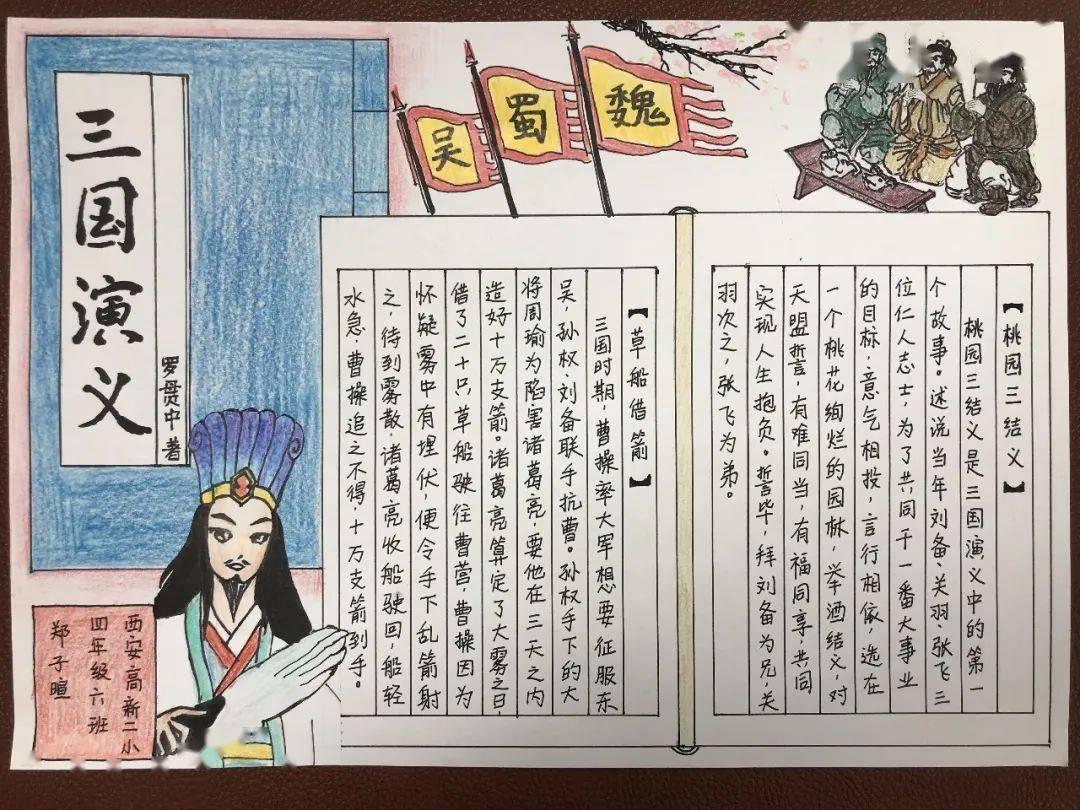 三国演义
罗贯中著
吴
蜀
魏
【桃园三结义】
桃园三结义是三国演义中的第一
个故事。述说当年刘备、关羽、张飞三
位仁人志士,为了共同干一番大事业
的目标,意气相投,言行相依,选在
一个桃花绚烂的园林,举酒结义,对
天盟誓,有难同当,有福同享,共同
实现人生抱负。誓毕,拜刘备为兄,关
羽次之,张飞为弟。
【草船借箭】
三国时期,曹操率大军想要征服东
吴,孙权、刘备联手抗曹。孙权手下的大
将周瑜为陷害诸葛亮,要他在三天之内
造好十万支箭。诸葛亮算定了大雾之日,
借了二十只草船驶往曹营,曹操因为
怀疑雾中有埋伏,便令手下乱箭射
之,待到雾散,诸葛亮收船驶回,船轻
水急,曹操追之不得,十万支箭到手。
西安高新二小
四年级六班
郑子暄